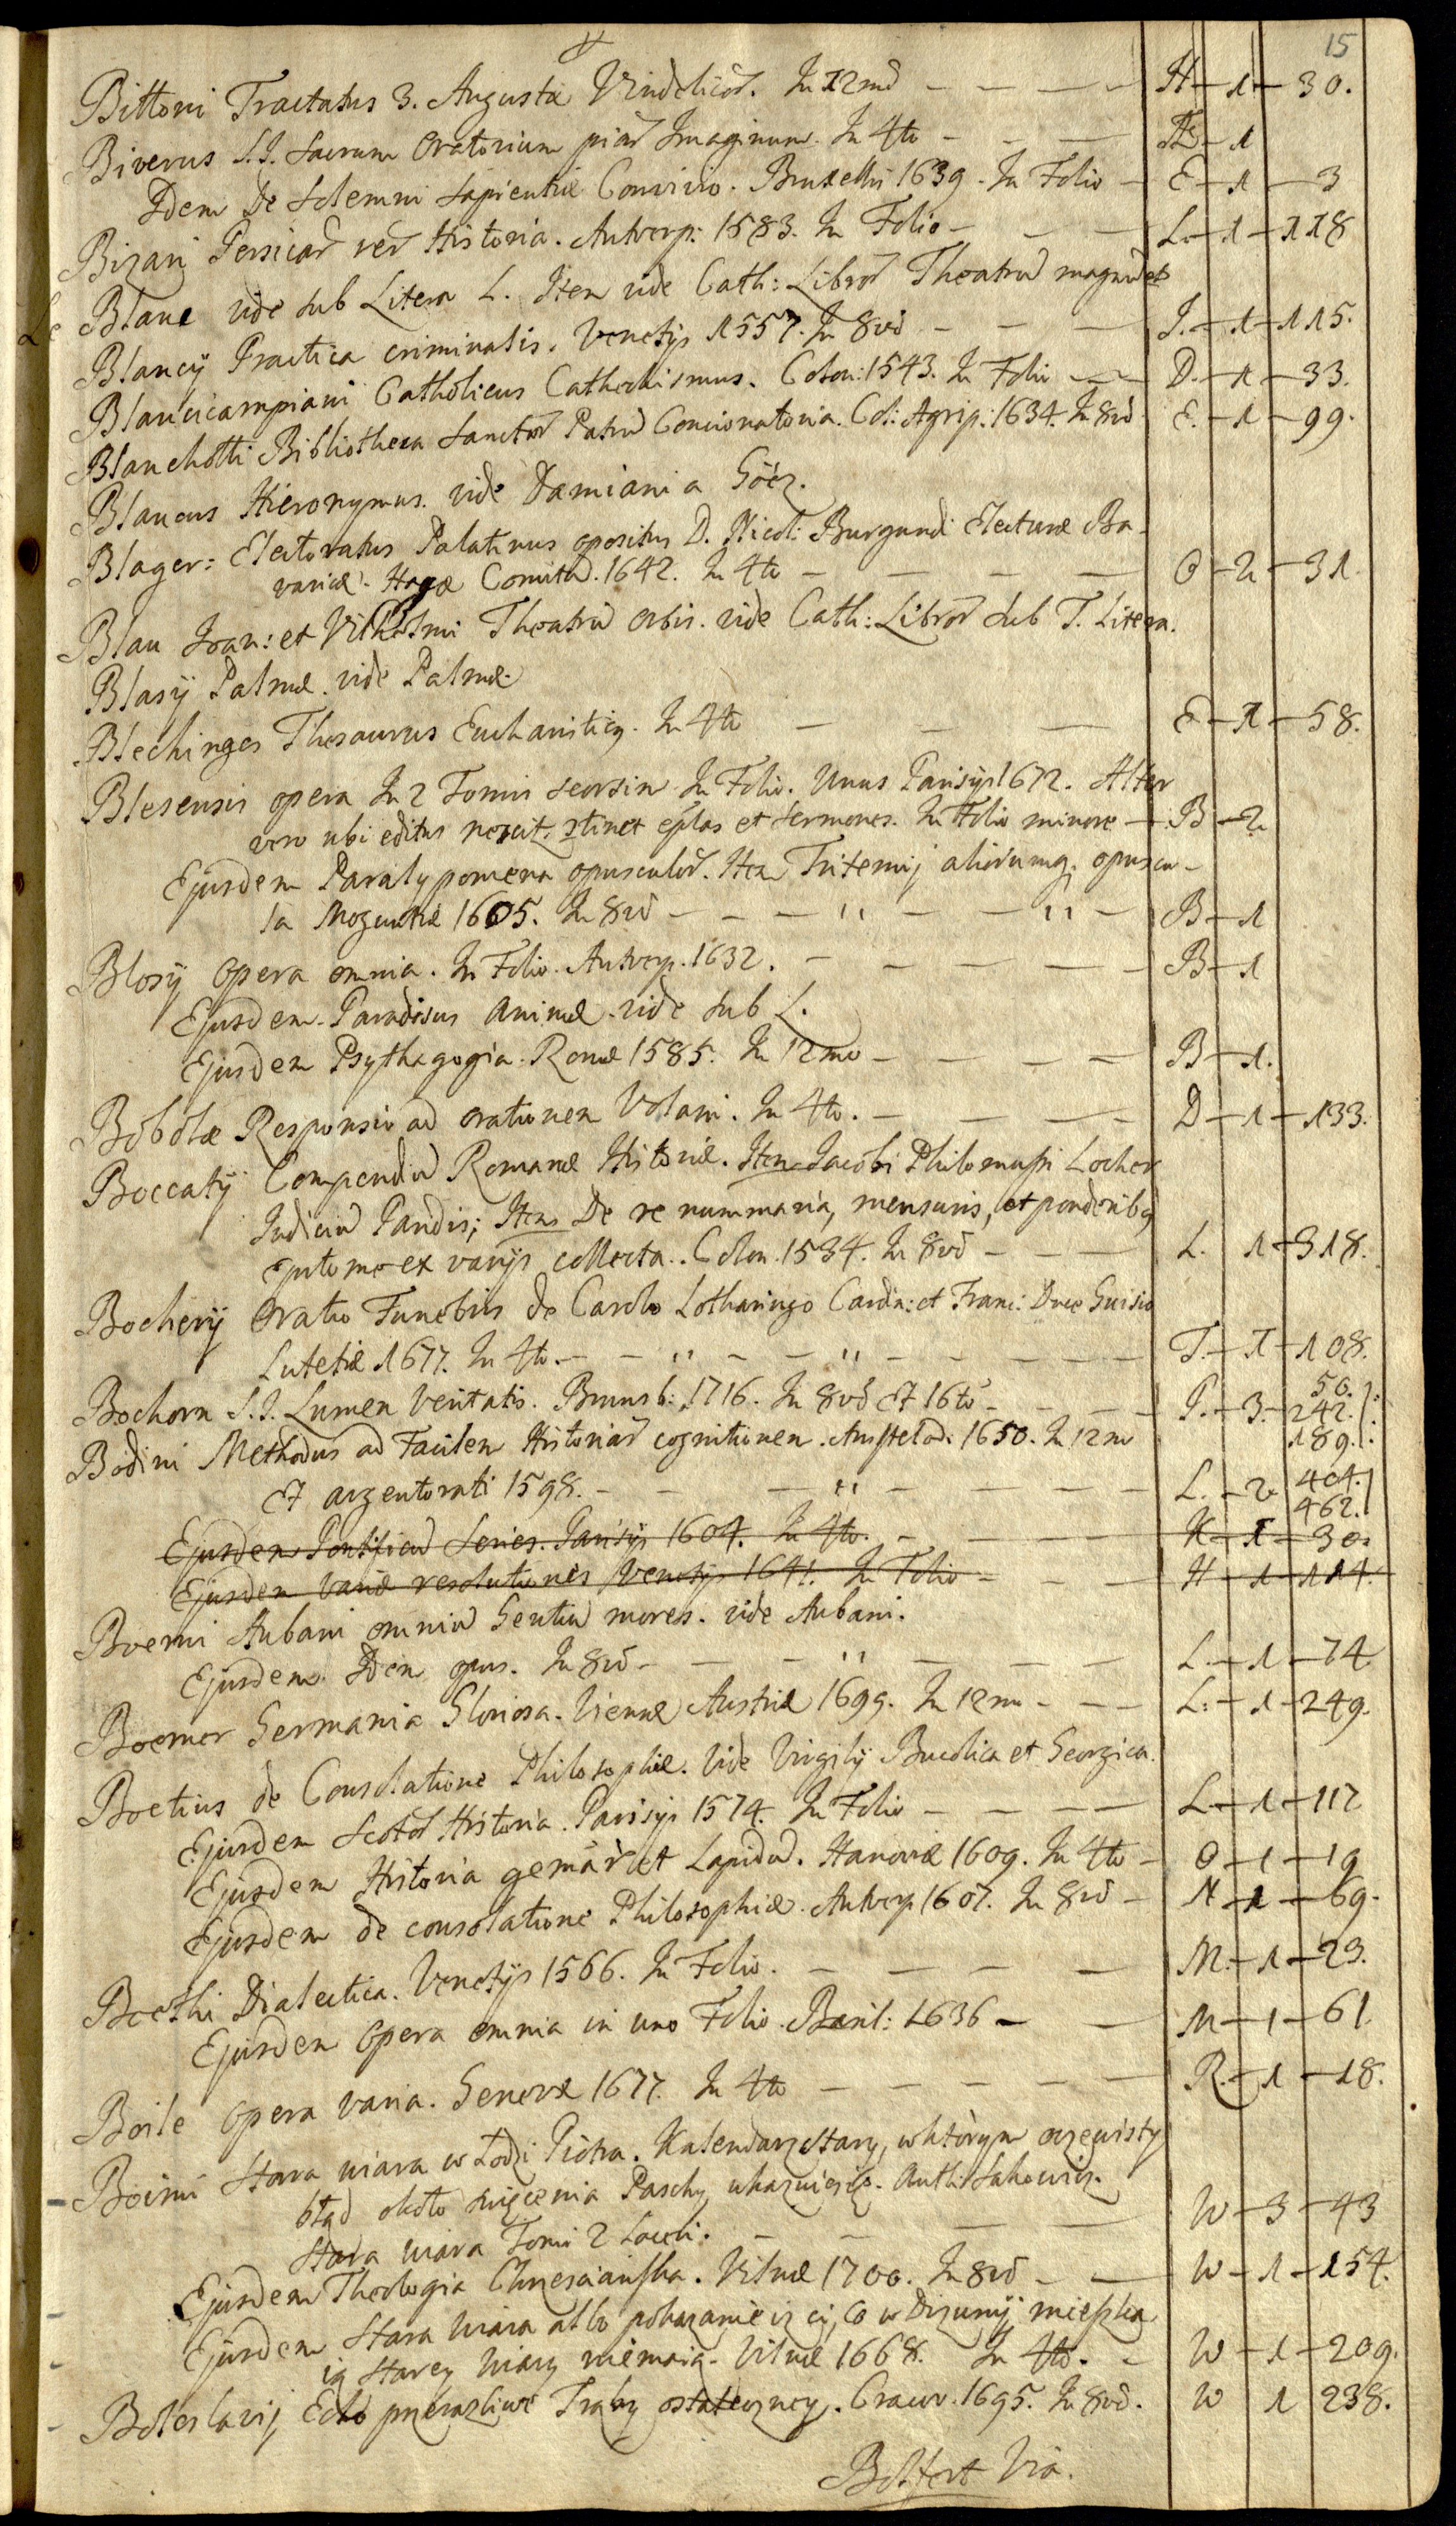 15
Bittoni Tractatus 3. Augustæ Vindelicor. In 12mo - - - - H - 1 - 30.
Biverus S.J. Sacrum Oratorium piar Imaginum. In 4to - - - Æ - 1
Idem De Solemni Sapientiæ Convivio. Bruxellis 1639. In Folio - E - 1 - 3
Bizari Persicar rer Historia. Antverp: 1583. In Folio - - - L. - 1 - 118
Blane vide sub Litera L. Item vide Cath: Libror Theatru magnu et
Blancij Practica criminalis. Venetijs 1557. In 8vo - - - J. - 1 - 115.
Blancicampiani Catholicus Cathechismus. Colon: 1543. In Folio - - D. - 1 - 33.
Blanchotti Bibliotheca Sanctor Patru Concionatoria. Col: Agrip: 1634. In 8vo E. - 1 - 99.
Blancus Hieronymus. vide Damiani a Göez.
Blager: Electoratus Palatinus opositus D. Nicol: Burgundi Electuræ Ba-
varicæ. Hagæ Comitu. 1642. In 4to - - - - O - 2 - 31.
Blau Joan: et Vilhelmi Theatru orbis. vide Cath: Libror sub T. Litera.
Blasij Palmæ. vide Palmæ.
Blechinger Thesaurus Eucharisticq. In 4to - - - E - 1 - 58.
Blesensis opera In 2 Tomis seorsim In Folio. Unus Parisijs 1672. Alter
vero ubi editus nescit, stinet eplas et Sermones. In Folio minore - B - 2
Ejusdem Paralypomena opusculor. Item Tritemij aliorumq. opuscu-
la Moguntiæ 1605. In 8vo - - - " - - " - B - 1
Blosij Opera omnia. In Folio. Antverp. 1632. - - - - - B - 1
Ejusdem. Paradisus animæ. vide sub L.
Ejusdem Psythagogia. Romæ 1585. In 12mo - - - - B - 1.
Bobolæ Responsio ad orationem Volani. In 4to. - - - - D - 1 - 133.
Boccatij Compendiu Romanæ Historiæ. Item Jacobi Philomusi Locher
Judiciu Paridis; Item De re nummaria, mensuris, et ponderibq
epitome ex varijs collecta. Colon. 1534. In 8vo - - - L. 1 - 318.
Bocherij Oratio Funebris de Carolo Lotharingo Cardin: et Franc: Duce Guisio
Lutetiæ 1677. In 4to. - - " - - " - - - - T. - 1 - 108.
Bochorn S.J. Lumen Veritatis. Brunsb: 1716. In 8vo et 16to - - - - P. - 3. - 50. 242. 189.
Bodini Methodus ad Facilem Historiar cognitionem. Amstelod: 1650. In 12mo
et argentorati 1598. - - - " - - - - L. - 2 404. 462.
Ejusdem Pontificu Series. Parisijs 1604. In 4to. - - - - K - 1 - 30.
Ejusdem variæ resolutiones Venetijs 1641. In Folio - - - H - 1 - 114.
Boemi Aubani omniu Gentiu mores. vide Aubani.
Ejusdem. Idem opus. In 8vo - - - " - - - L. - 1 - 74.
Boemer Germania Gloriosa. Viennæ Austriæ 1699. In 12mo - - - L: - 1 - 249.
Boetius de Consolatione Philosophiæ. vide Virgilij Bucolica et Georgica.
Ejusdem Scotor Historia. Parisijs 1574. In Folio - - - - L - 1 - 112
Ejusdem Historia gemar et Lapidu. Hanoviæ 1609. In 4to - O - 1 - 19
Ejusdem de consolatione Philosophiæ. Antverp 1607. In 8vo - N - 1 - 69.
Boethi Dialectica. Venetijs 1566. In Folio. - - - - M. - 1 - 23.
Ejusdem Opera omnia in uno Folio. Basil: 1636 - - M - 1 - 61.
Boile Opera varia. Genevæ 1677. In 4to - - - - - R. - 1 - 18.
Boimi Stara wiara w Łodzi Piotra. Kalendarz stary, w ktòrym oczewisty
błąd około święcenia Paschy ukazuiesię. Auth: Sakowicz.
Stara wiara Tomi 2 Loceri. - - - - W - 3 - 43
Ejusdem Theologia Chrzesciańska. Vilnæ 1700. In 8vo - - W - 1 - 154.
Ejusdem Stara Wiara albo pokazanie iz ci, co w Dizunij mieszka
ią starey Wiary niemaią. Vilnæ 1668. In 4to. - W - 1 - 209.
Boleslavij Echo przerazliwe Trąby ostateczney. Cracov. 1695. In 8vo. W 1 238.
Bolfert Via.